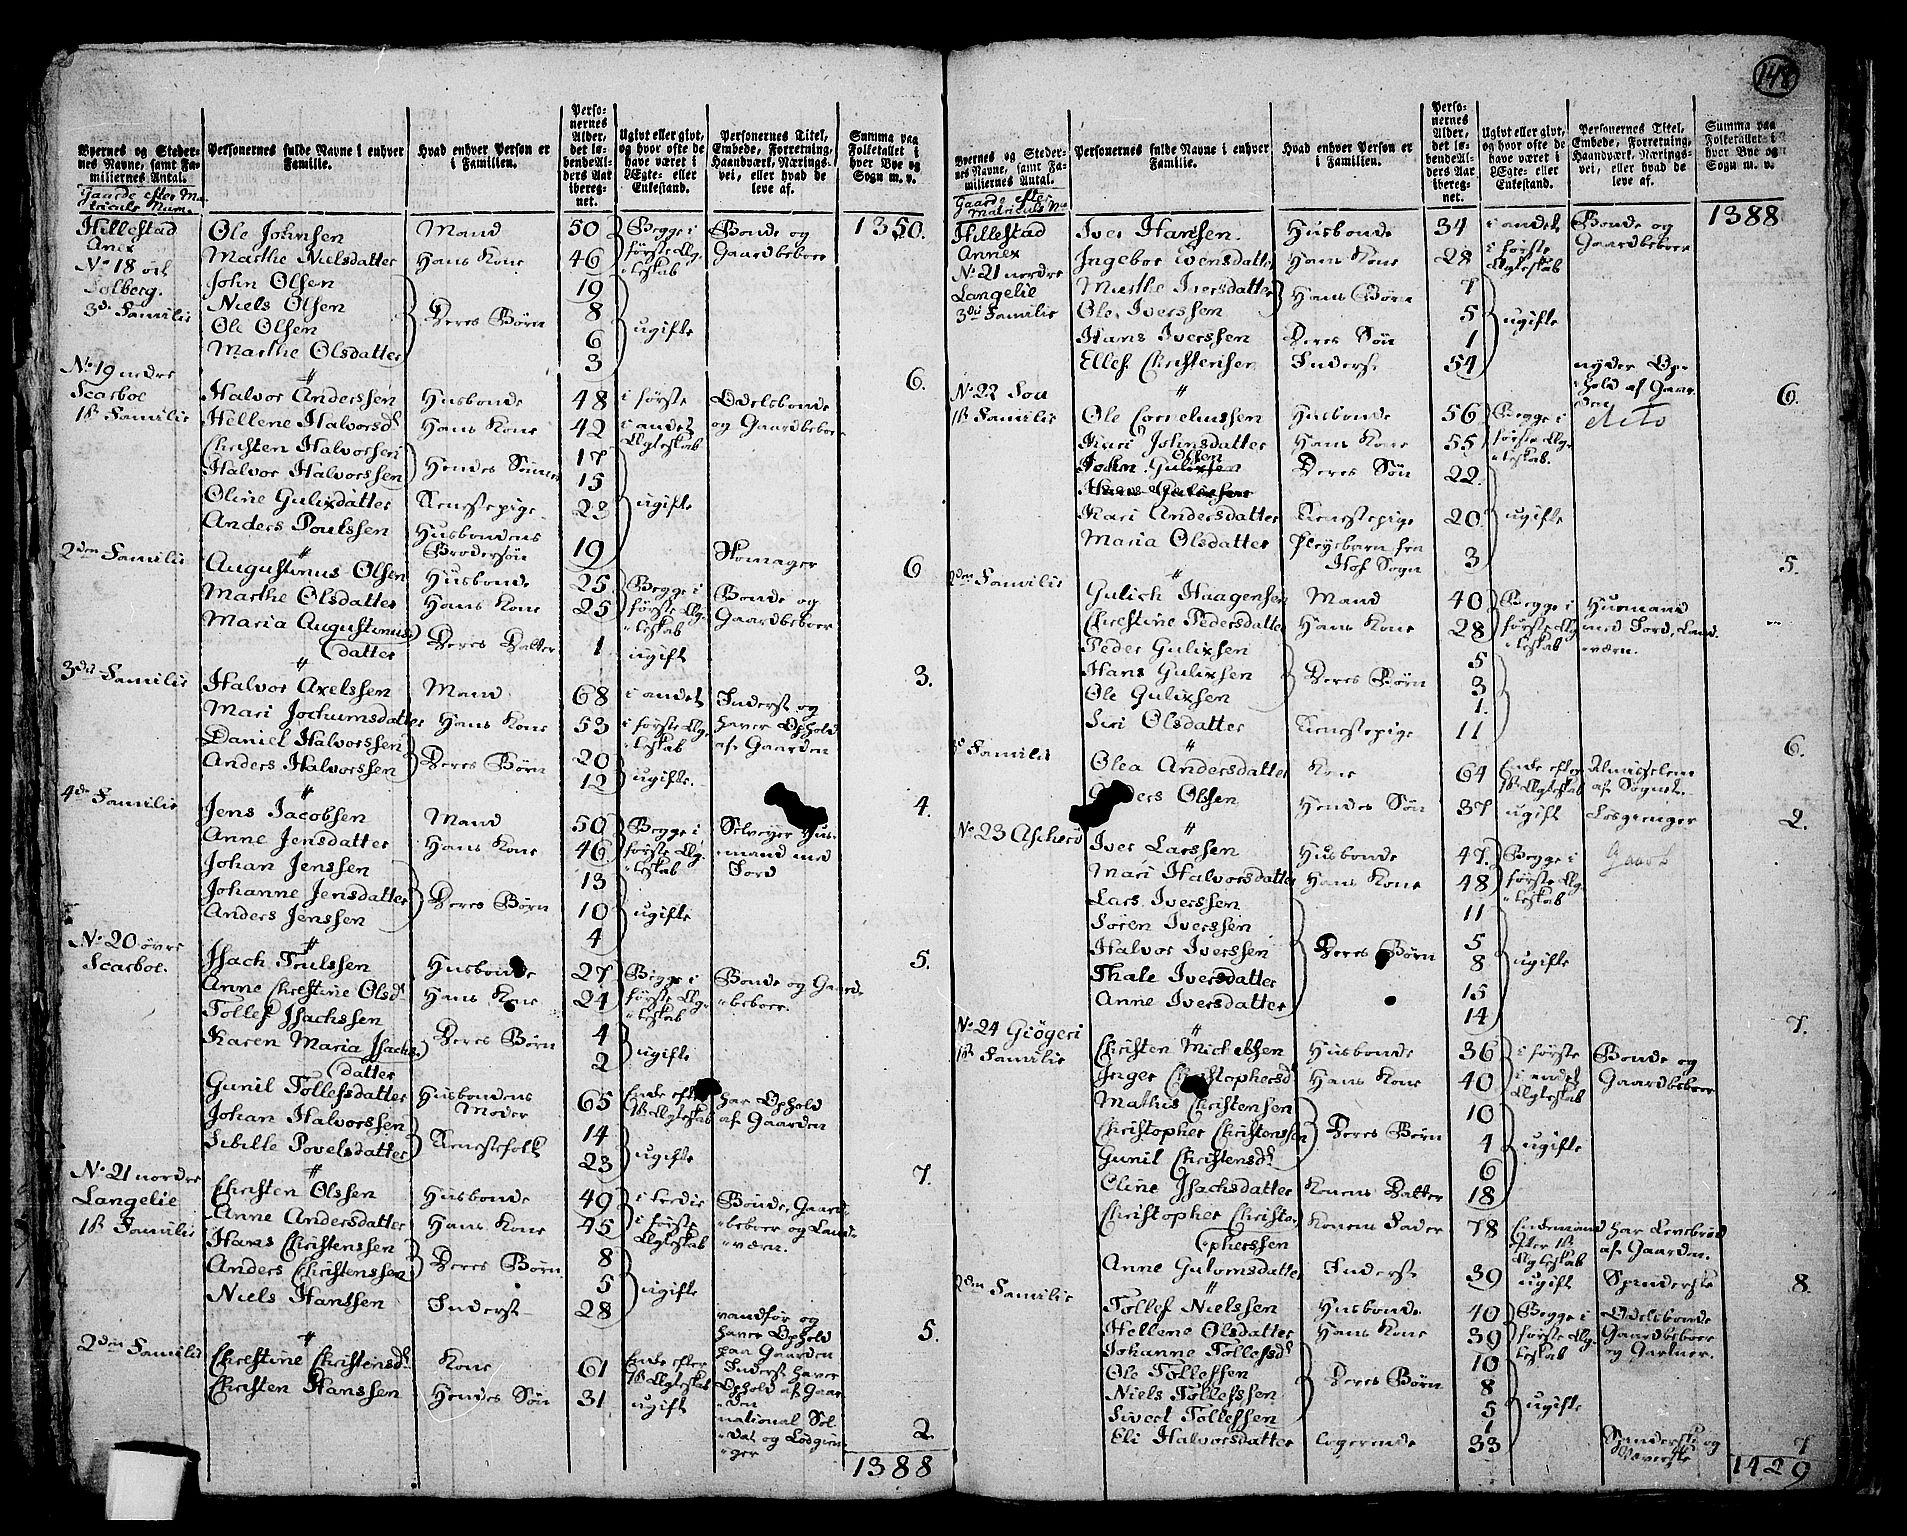 148
Byernes og Stedernes Navne, samt Familiernes Antal.
Gaarde efter Matriculs Num.
Personernes fulde Navne i enhver Familie.
Hvad enhver Person er i Familien.
Personernes Alder, det løbende Alders Aar iberegnet.
Ugivt eller givt, og hvor ofte de have været i Ægte- eller Enkestand.
Personernes Titel, Embede, Forretning, Haandværk, Næringsvei, eller hvad de leve af.
Summa paa Folketallet i hver Bye og Sogn m. v.
1350.
Hillestad Anex
No 18 öst Solberg.
3die Familie
Ole Johnsen Mand 50 Begge i første Ægteskab Bonde og Gaardbeboer
Marthe Nielsdatter Hans Kone 46
John Olsen Deres Börn 19 ugifte
Niels Olsen 8
Ole Olsen 6
Marthe Olsdatter 3
6.
No 19 nedre Scarboe
1ste Familie
Halvor Anderssen Husbonde 48 i første Odelsbonde og Gaardbeboer
Hellene Halvorsd. Hans Kone 42 i andet Ægteskab
Christen Halvorssen Hendes Sönner 17 ugifte
Halvor Halvorssen 15
Oline Gulixdatter Tienestepige 23
Anders Poulssen Husbondens Brodersön 19 Homager
6
2den Familie
Augustinus Olsen Husbonde 25 Begge i første Ægteskab Bonde og Gaardbeboer
Marthe Olsdatter Hans Kone 25
Maria Augustinusdatter Deres Datter 1 ugift
3.
3die Familie
Halvor Axelssen Mand 68 i andet Inderst og haver Ophold af Gaarden
Mari Jochumsdatter Hans Kone 53 i første Ægteskab
Daniel Halvorssen Deres Börn 20 ugifte.
Anders Halvorssen 12
4.
4de Familie
Jens Jacobsen Mand 50 Begge i første Ægteskab Selveyer Husmand med Jord
Anne Jensdatter Hans Kone 46
Johan Jenssen Deres Börn 13 ugifte
Johanne Jensdatter 10
Anders Jenssen 4
5.
No 20 övre Scarboe.
Isach Trulssen Husbonde 27 Begge i første Ægteskab Bonde og Gaardbeboer.
Anne Christine Olsd. Hans Kone 24
Tollef Isachssen Deres Börn 4 ugifte
Karen Maria Isachsdatter 2
Gunil Tollefsdatter Husbondens Moder 65 Enke efter 1ste Ægteskab har Ophold af Gaarden
Johan Halvorssen Tienestefolk 14 ugifte
Sibille Povelsdatter 23
7.
No 21 nordre Langelie
1ste Familie
Christen Olssen Husbonde 49 i tredie Bonde, Gaardbeboer og Landværn.
Anne Andersdatter Hans Kone 45 i første Ægteskab
Hans Christenssen Deres Börn 8 ugifte
Anders Christenssen 5
Niels Hanssen Inderst 28 vandför og haver Ophold paa Gaarden
5.
2den Familie
Christine Christensd. Kone 61 Enke efter 1ste Ægteskab Inderst haver Ophold af Gaarden
Christen Hanssen Hendes Sön 31 ugift national Soldat og Losgienger
2.
1388
Byernes og Stedernes Navne, samt Familiernes Antal.
Gaarde efter Matriculs No
Personernes fulde Navne i enhver Familie.
Hvad enhver Person er i Familien.
Personernes Alder, det løbende Alders Aar iberegnet.
Ugivt eller givt, og hvor ofte de have været i Ægte- eller Enkestand.
Personernes Titel, Embede, Forretning, Haandværk, Næringsvei, eller hvad de leve af.
Summa paa Folketallet i hver Bye og Sogn m. v.
1388
Hillestad Annex
No 21 nordre Langelie
3die Familie
Iver Hansen. Husbonde 34 i andet Bonde og Gaardbeboer
Ingebor Evensdatter Hans Kone 28 i første Ægteskab
Marthe Iversdatter Hans Börn 7 ugifte
Ole Iverssen 5
Hans Iverssen Deres Sön 1
Ellef Christensen Inderst 54 nyder Ophold af Gaarden
6.
No 22 Sou
1ste Familie
Ole Corneliussen Husbonde 56 Begge i første Ægteskab. dito
Kari Johnsdatter Hans Kone 55
John Olsen Deres Sön 22 ugifte
Kari Andersdatter Tienestepige 20
Maria Olsdatter Pleyebarn fra Hof Sogn 3
5.
2den Familie
Gulich Haagensen Mand 40 Begge i første Ægteskab Husmand med Jord, Landværn.
Christine Pedersdatter Hans Kone 28
Peder Gulixsen Deres Börn 5
Hans Gulixsen 3
Ole Gulixsen 1.
Siri Olsdatter Tienestepige 11
6.
3die Familie
Olea Andersdatter Kone 64 Enke efter 1ste Ægteskab Almisselem af Sognet.
Anders Olssen Hendes Sön 37 ugift Losgienger
2.
No 23 Ascherö
Iver Larssen Husbonde 47. Begge i første Ægteskab Gaard
Mari Halvorsdatter Hans Kone 48
Lars Iverssen Deres Börn 11 ugifte
Sören Iverssen 5
Halvor Iverssen 8
Thale Iversdatter 15
Anne Iversdatter 14
7.
No 24 Giögeri
1ste Familie
Christen Michelsen Husbonde 36 i første Bonde og Gaardbeboer
Inger Christophersd. Hans Kone 40 i andet Ægteskab
Mathis Christensen Deres Börn 10 ugifte
Christopher Christenssen 4
Gunil Christensd. 6
Oline Isachsdatter Konens Datter 18
Christopher Christopherssen Konens Fader 78 Enkemand efter 1ste Ægteskab har Levebröd af Gaarden.
Anne Gulomsdatter Inderst 39 ugift Spinderske
8.
2den Familie
Tollef Nielssen Husbonde 40 Begge i første Ægteskab Odelsbonde Gaardbeboer og Gartner.
Hellene Olsdatter Hans Kone 39
Johanne Tollefsd. Deres Börn 10 ugifte
Ole Tollefssen 8
Niels Tollefssen 5
Sivert Tollefsen 1
Eli Halvorsdatter Logerende 33 Spinderske og Væverske
7
1429